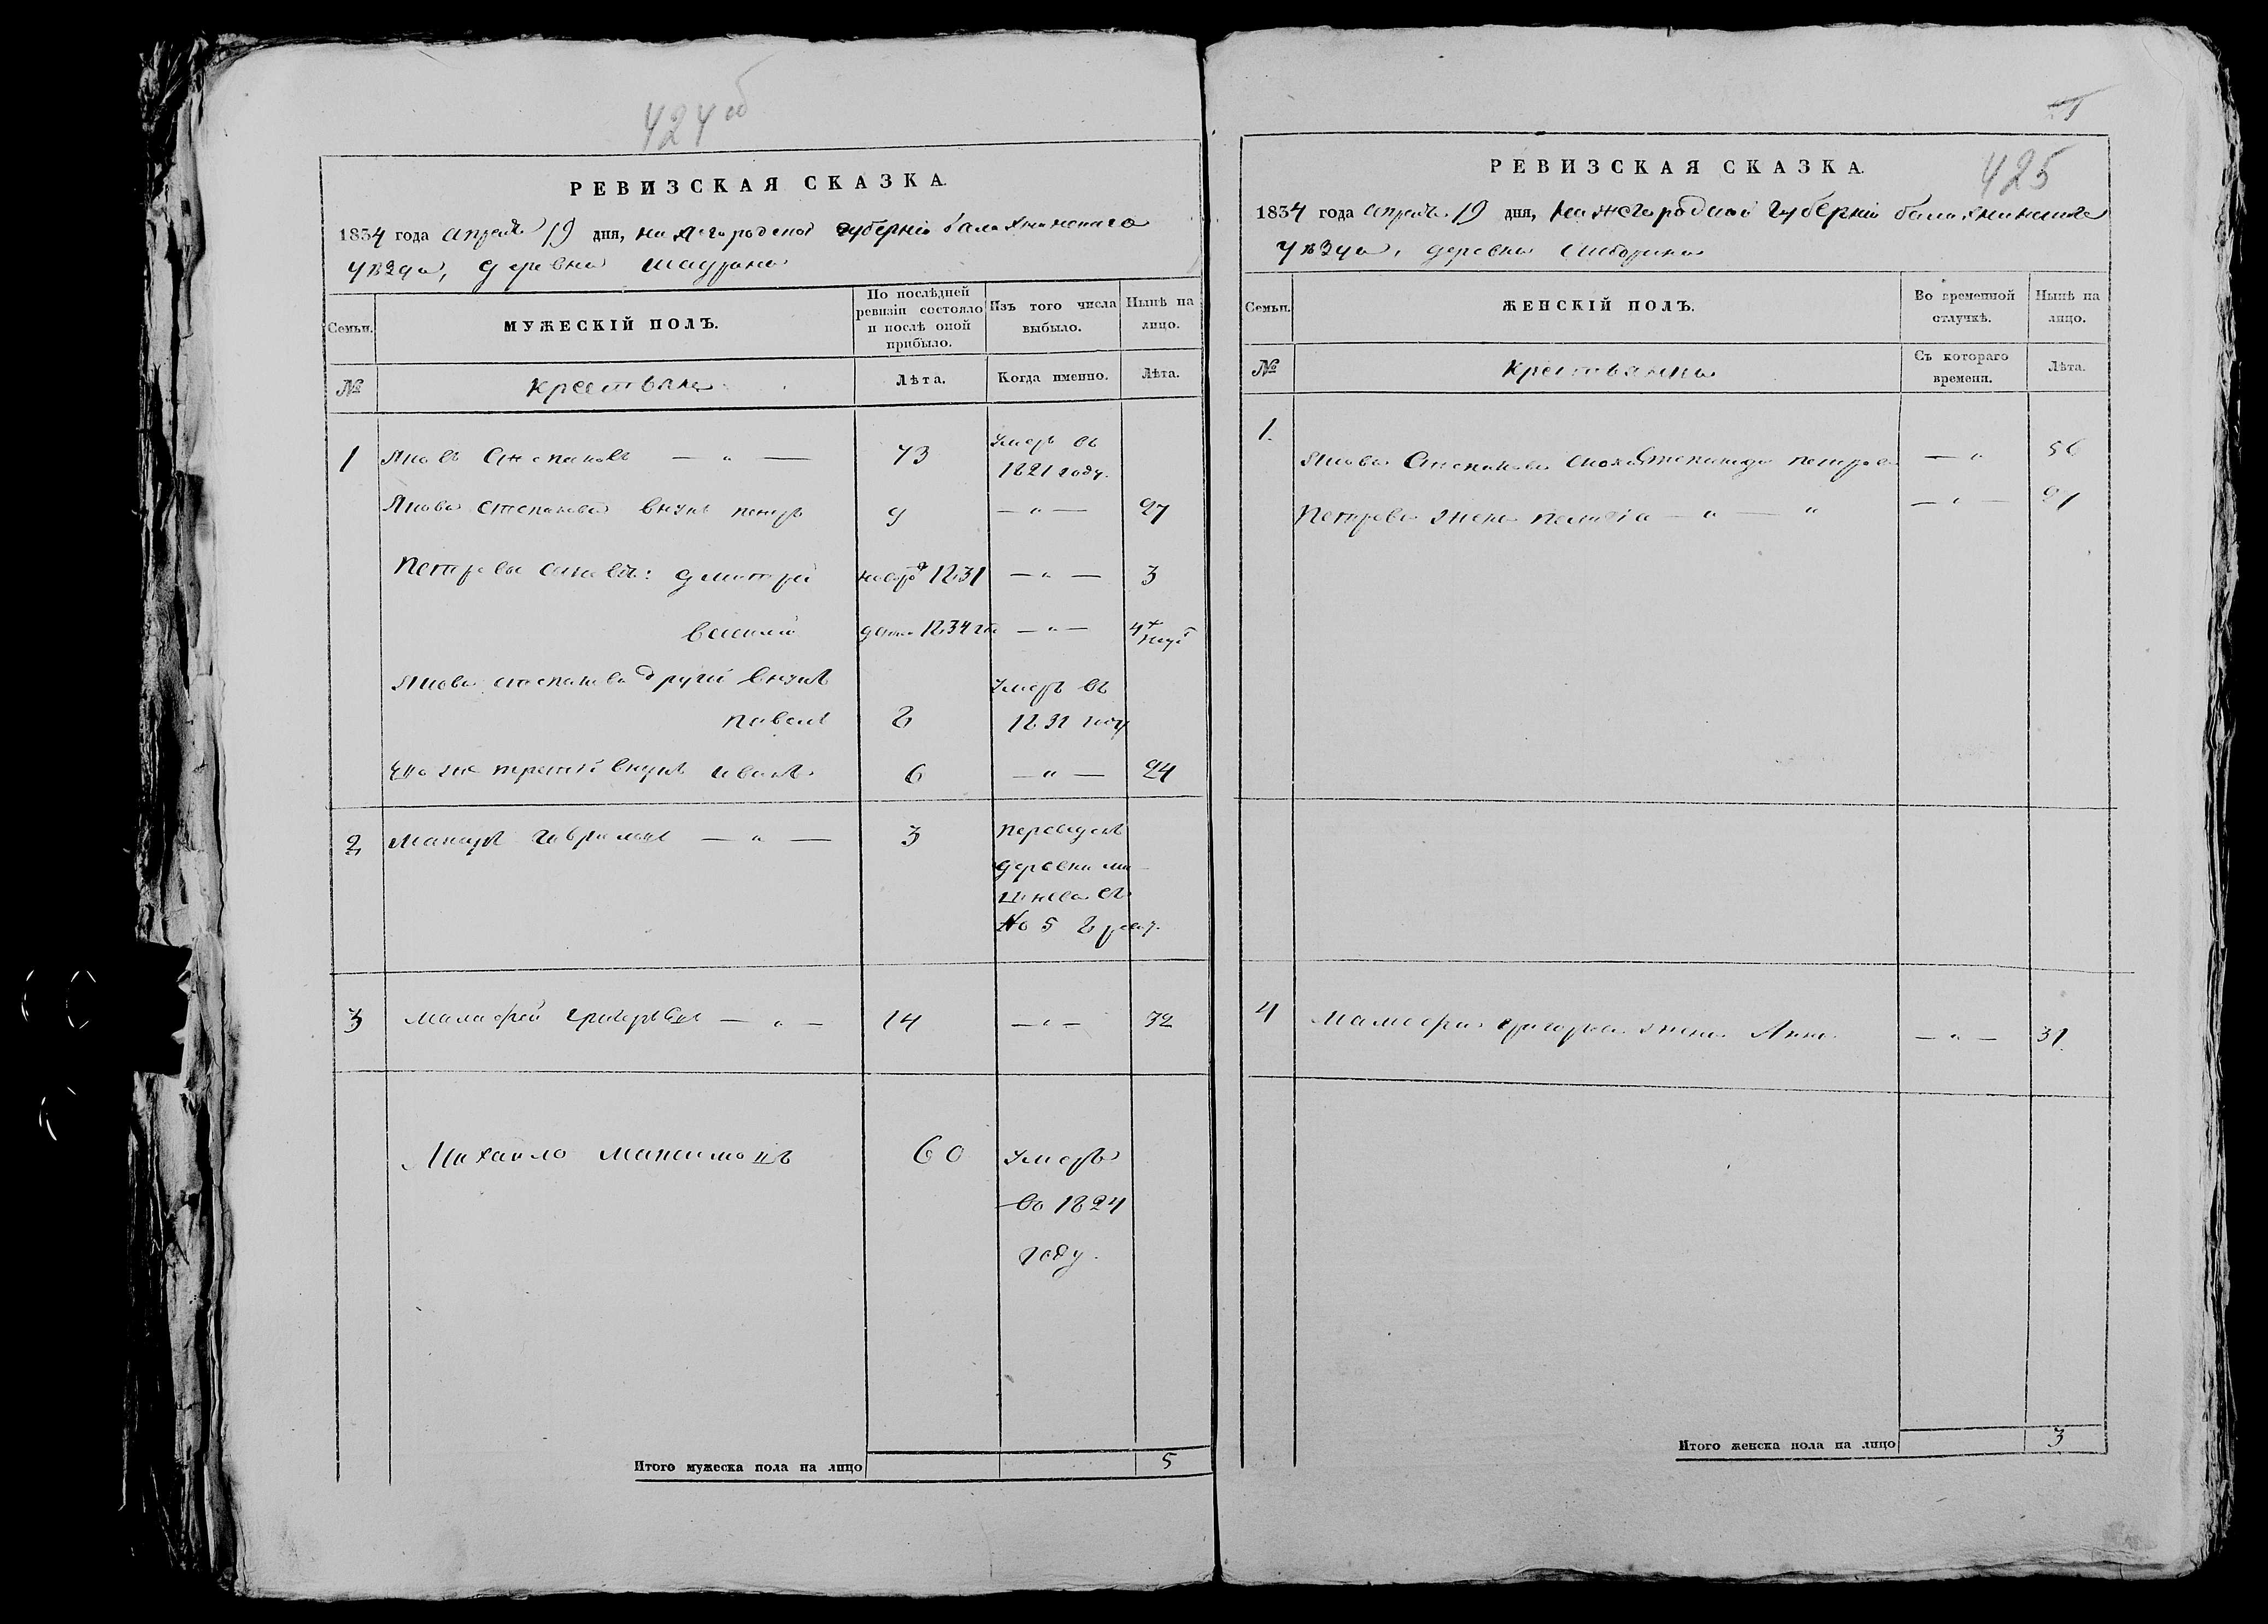 424 об
РЕВИЗСКАЯ СКАЗКА.
1834 года апреля 19 дня, нижегородской губернiи балахнинскаго
уѣзда, деревни
МУЖЕСКІЙ ПОЛЪ.
Семьи.
По послѣдней ревизіи состояло и послѣ оной прибыло.
Изъ того числа выбыло.
Нынѣ на лицо.
№ крестьяне Лѣта. Когда именно. Лѣта.
1 Яковъ Степановъ — " — 73 умеръ въ 1821 году.
Якова степанова внукъ петръ 9 — " — 27
Петровы сыновья: дмитрій 1831 — " — 3
василий 1834 — " —
Якова степанова другий внукъ павелъ 8 умеръ въ 1831 году
его же третій внукъ иванъ 6 — " — 24
2 Макаръ гавриловъ — " — 3 переведенъ деревни въ № 5
3 малафей григорьевъ — " — 14 — " — 32
Михаило максимовъ 60 умеръ въ 1824 году.
Итого мужеска пола на лицо 5
425
РЕВИЗСКАЯ СКАЗКА.
1834 года апреля 19 дня, нижегородской губернiи балахнинскаго
уѣзда, деревни
Семьи. ЖЕНСКІЙ ПОЛЪ. Во временной отлучкѣ. Нынѣ на лицо.
№ крестьянки Съ котораго времени. Лѣта.
1. Якова Степанова петрова — " 56
Петрова жена — " — " — " —
4 малафея григорьева жена Анна — " — 31.
Итого женска пола на лицо 3